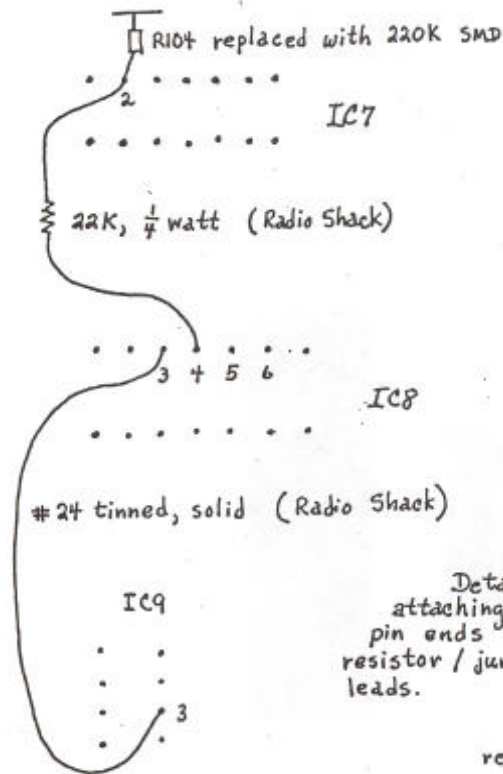 R104 replaced with 220K SMD
2
IC7
22K, 1/4 watt (Radio Shack)
3 4 5 6
IC8
#24 tinned, solid (Radio Shack)
IC9
attaching
pin ends
3
resistor /
leads.